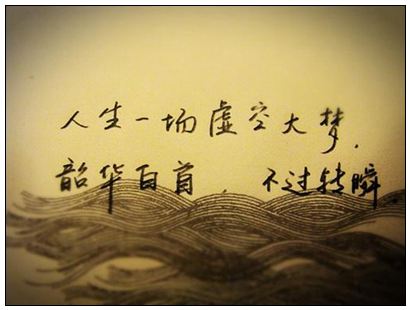 人生一场虚空大梦,
韶华白首, 不过转瞬